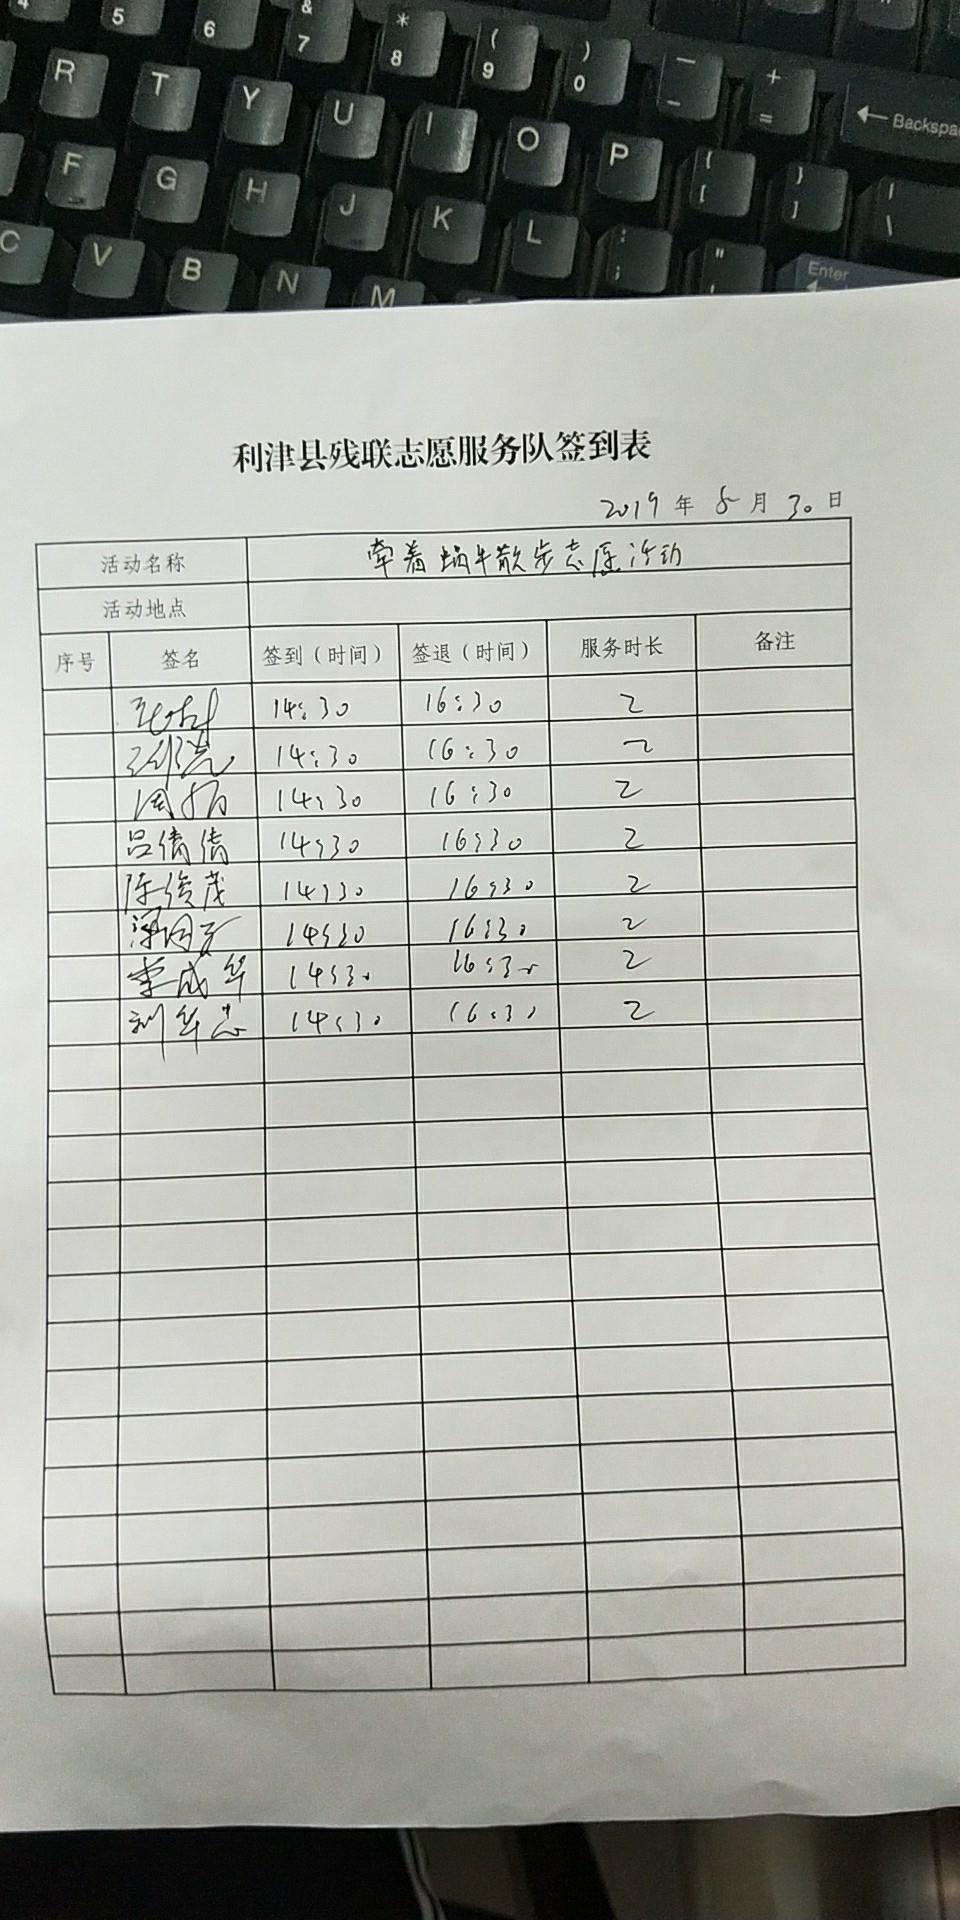 4 5 6 & 7 * 8 ( 9 ) 0 — _ + =
R T Y U I O P { [ } ] ← Backspa
F G H J K L : ; " ' | \
C V B N M Enter
利津县残联志愿服务队签到表
2019 年 8 月 30 日
活动名称 牵着蜗牛散步志愿活动
活动地点
序号 签名 签到（时间） 签退（时间） 服务时长 备注
14:30 16:30 2
14:30 16:30 2
14:30 16:30 2
吕倩倩 14:30 16:30 2
陈俊茂 14:30 16:30 2
14:30 16:30 2
李成华 14:30 16:30 2
刘华忠 14:30 16:30 2